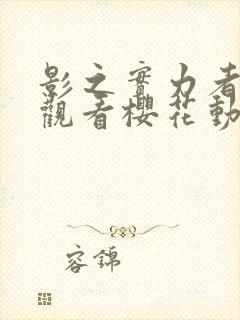 影之實力者
觀看櫻花動
容錦